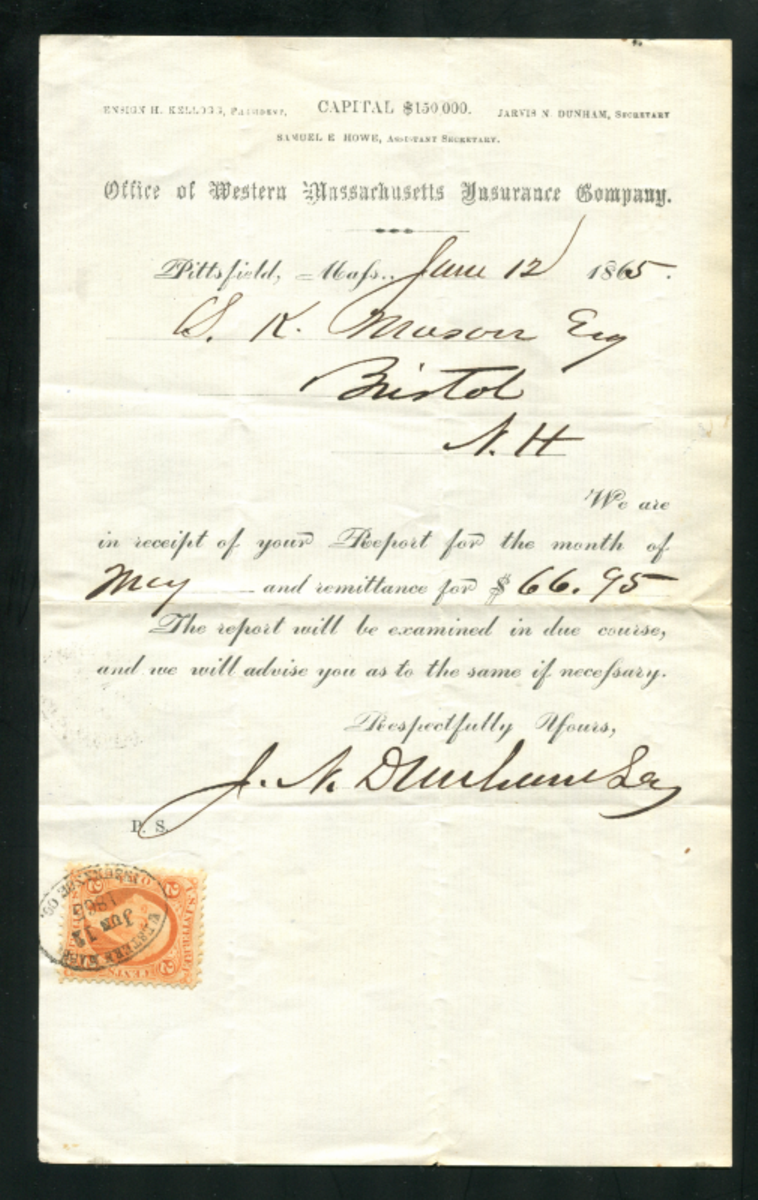 ENSIGN H. KELLOGG, PRESIDENT. CAPITAL $150 000. JARVIS N. DUNHAM, SECRETARY
SAMUEL E HOWE, ASSISTANT SECRETARY.
Office of Western Massachusetts Insurance Company.
Pittsfield, Mass., June 12 1865.
S. K. Mason Esq
Bristol
N. H
We are
in receipt of your Report for the month of
May and remittance for $ 66.95
The report will be examined in due course,
and we will advise you as to the same if necessary.
Respectfully Yours,
J. N. Dunham Secy
P. S.
WESTERN MASS. INSURANCE CO.
JUN 12
1865
2 CENTS 2
U.S. INTER. REV.